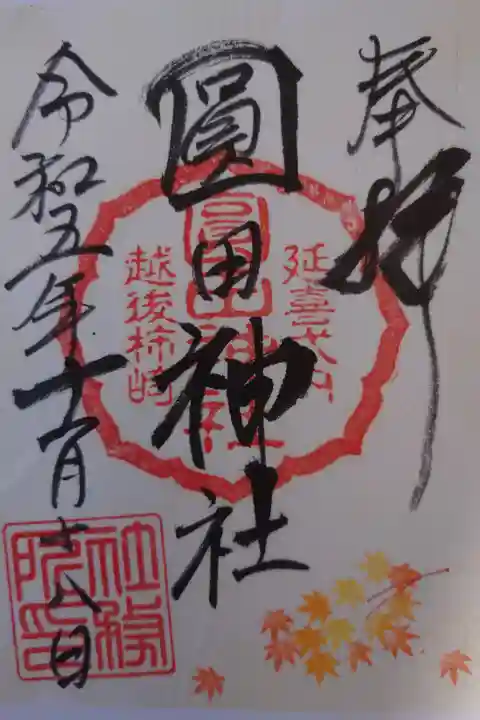 奉拝
延喜式内
圓田神社
圓田神社
越後柿崎
令和五年十一月十八日
社務所印